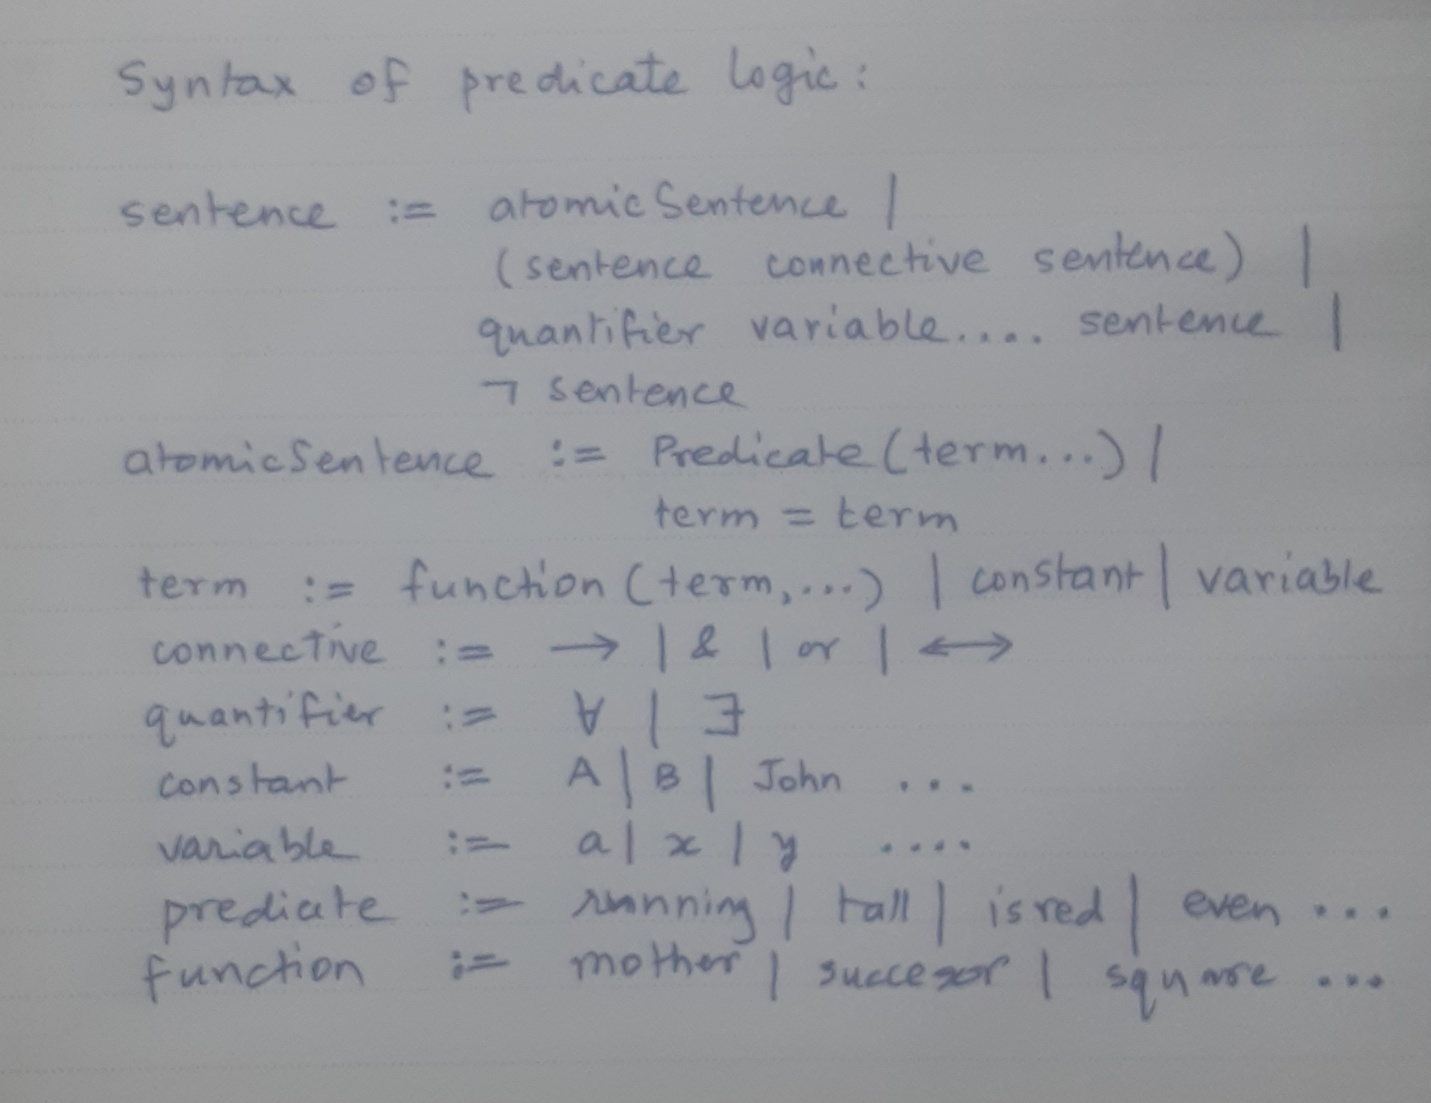 Syntax of predicate logic:
sentence := atomicSentence |
(sentence connective sentence) |
quantifier variable.... sentence |
¬ sentence
atomicSentence := Predicate(term...) |
term = term
term := function(term,...) | constant | variable
connective := → | & | or | ↔
quantifier := ∀ | ∃
constant := A | B | John ...
variable := a | x | y ....
predicate := running | tall | isred | even ...
function := mother | succesor | square ...